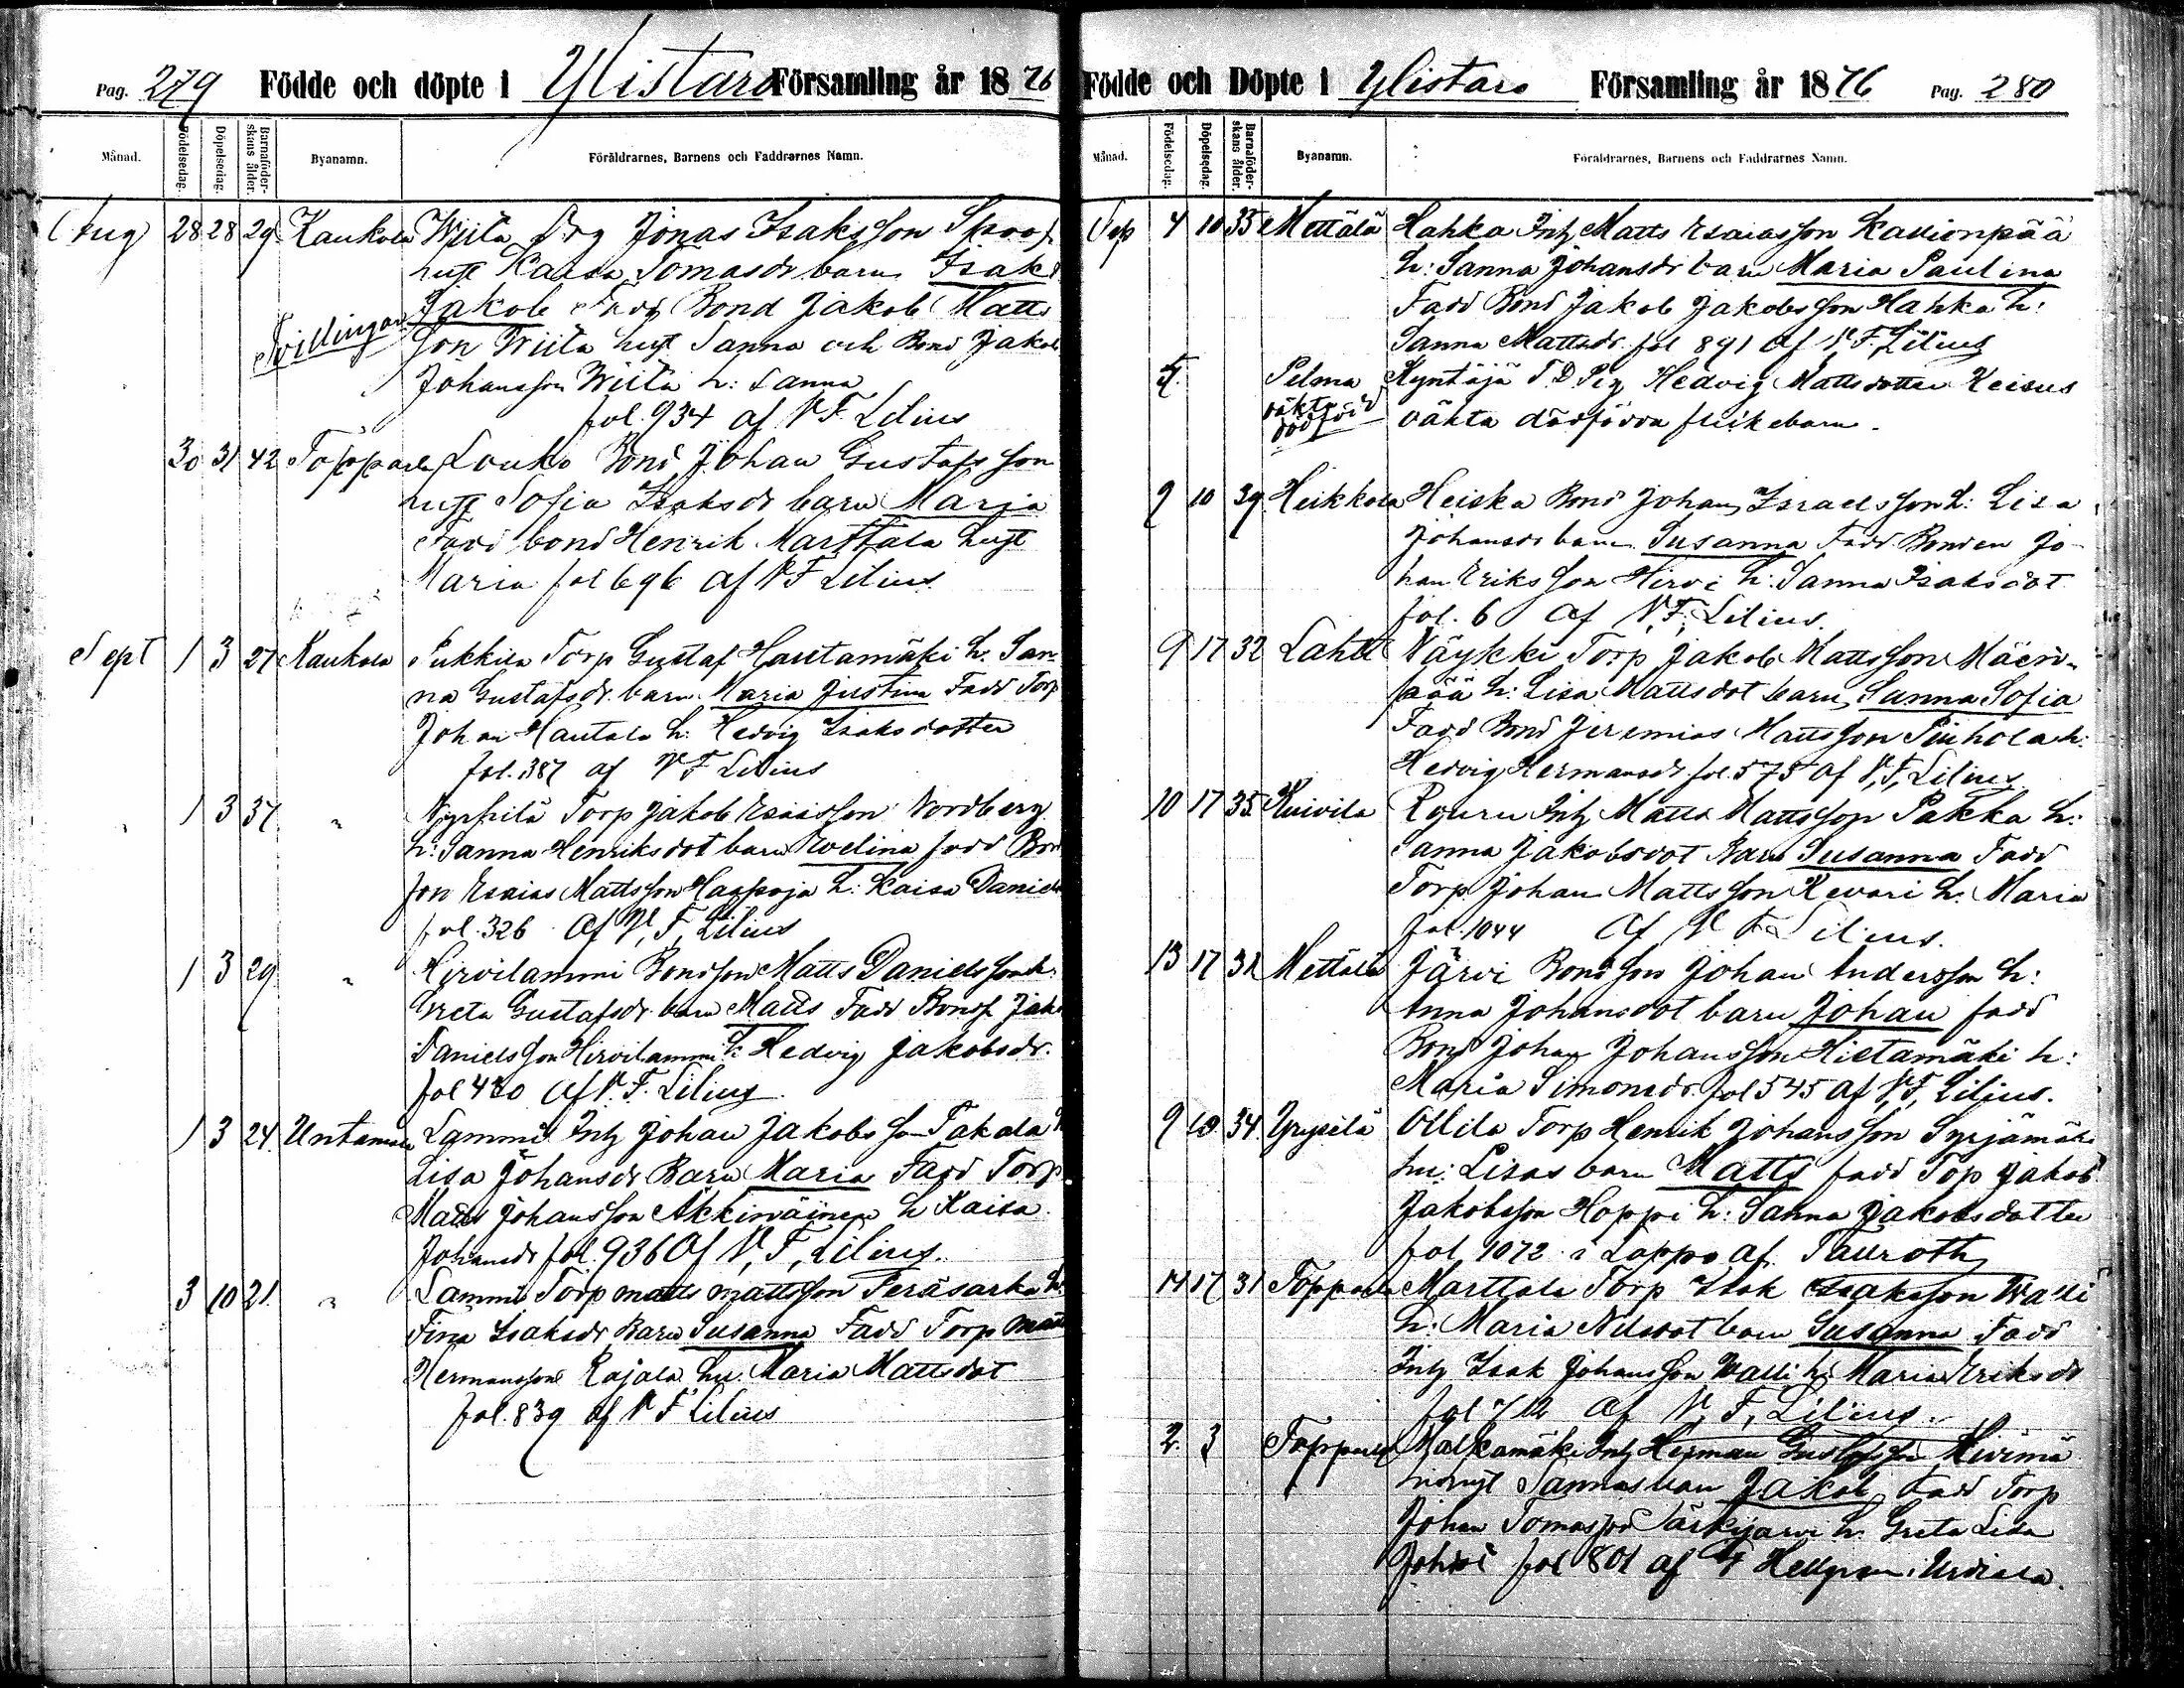 Pag. 279 Födde och döpte i Ylistaro Församling år 1876
Månad. Födelsedag. Döpelsedag. Barnaföderskans ålder. Byanamn. Föräldrarnes, Barnens och Faddrarnes Namn.
Aug 28 28 29 Kaukola Wiita Drg Jonas Isaksson Skoof
hust Kaisa Tomasdr barn Isak &
Jakob Fadd Bond Jakob Matts
Tvillingar
son Wiita hust Sanna och Bond Jakob
Johansson Wiita h: Sanna
fol. 934 af V F Lilius
30 31 42 Toppala Louko Bond Johan Gustafsson
hust Sofia Isaksdr barn Marja
Fadd bond Henrik Marttala hust
Maria fol 696 af V F Lilius
Sept 1 3 27 Kaukola Pukkila Torp Gustaf Hautamäki h: San
na Gustafsdr. barn Maria Justina Fadd Torp
Johan Hautala h: Hedvig Isaksdotter
fol. 387 af V F Lilius
1 3 37 " Torp Jakob Esaisson Nordberg
h: Sanna Henriksdot barn Evelina fadd Bon
son Esaias Mattsson Haapoja h: Kaisa Daniels
fol. 326 af V, F, Lilius
1 3 29 " Hirvilammi Bondson Matts Danielsson h:
Greta Gustafsdr barn Matts Fadd Bonds Jak
Danielsson Hirvilammi h: Hedvig Jakobsdr.
fol 420 af V. F. Lilius
1 3 24 Untamala Lammi Inh Johan Jakobsson Takala h
Lisa Johansdr Barn Maria Fadd Torp
Matts Johansson Akkinäinen h Kaisa
Johansdr fol. 936 Af V, F, Lilius.
3 10 21. " Lammi Torp matts mattsson Peräsarka h:
Fina Isaksdr Barn Susanna Fadd Torp matts
Hermansson Rajala hu: Maria Mattsdot
fol. 839 af V F Lilius
Födde och Döpte i Ylistaro Församling år 1876 Pag. 280
Månad. Födelsedag. Döpelsedag. Barnaföderskans ålder. Byanamn. Föräldrarnes, Barnens och Faddrarnes Namn.
Sep 4 10 35 Mettälä Hahka Inh Matts Esaiasson Kallionpää
h: Sanna Johansdr barn Maria Paulina
Fadd Bond Jakob Jakobsson Hahka h:
Sanna Mattsdr fol 891 af V, F, Lilius
5. Pelma Kyntäjä T. D. Pig Hedvig Mattsdotter Keisus
oäkta dödfödd
oäkta dödfödda flickebarn.
9 10 39 Heikkola Heiska Bond Johan Israelsson h: Lisa
Johansdr barn Susanna Fadd. Bonden Jo
han Eriksson Hirvi h: Sanna Isaksdot
fol. 6 af V, F, Lilius.
9 17 32 Lahti Näykki Torp Jakob Mattsson Mäen-
pää h: Lisa Mattsdot barn Sanna Sofia
Fadd Bond Jeremias Mattsson Piuhola h:
Hedvig Hermansdr fol. 575 af V, F, Lilius
10 17 35 Kuivila Inh Matts Mattsson Pakka h:
Sanna Jakobsdot Barn Susanna Fadd
Torp Johan Mattsson Kevari h. Maria
fol. 1044 af V F Lilius.
13 17 Mettälä Järvi Bondson Johan Andersson h:
Anna Johansdot barn Johan fadd
Bond Johan Johansson Hietamäki h:
Maria Simonsdr fol 545 af V, F, Lilius.
9 10 34 Yrysilä Ollila Torp Henrik Johansson Syrjämäki
hu: Lisas barn Matts fadd Top Jakob
Jakobsson Hoppi h: Sanna Jakobsdotter
fol, 1072 i Lappo af Tallroth
14 17 31 Toppala Marttala Torp Isak Isaksson Walli
h: Maria Nilsdot barn Susanna Fadd
Inh Isak Johansson Walli h: Maria Eriksdr
fol 712 af V, F, Lilius.
2. 3 Toppala Malkamäki Inh Herman Gustafsson
hust Sannas barn Jakob, Fadd Torp
Johan Tomasson Särkijarvi h. Greta Lisa
fol 801 af Hellgren i